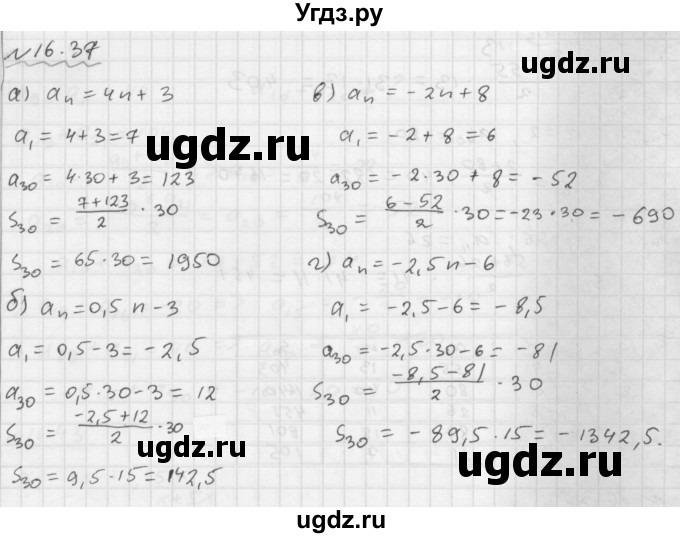 Угдз.ру
№16.37
а) aₙ = 4n + 3
a₁ = 4 + 3 = 7
a₃₀ = 4·30 + 3 = 123
S₃₀ = (7+123)/2 · 30
S₃₀ = 65·30 = 1950
б) aₙ = 0,5n - 3
a₁ = 0,5 - 3 = -2,5
a₃₀ = 0,5·30 - 3 = 12
S₃₀ = (-2,5+12)/2 · 30
S₃₀ = 9,5·15 = 142,5
в) aₙ = -2n + 8
a₁ = -2 + 8 = 6
a₃₀ = -2·30 + 8 = -52
S₃₀ = (6-52)/2 · 30 = -23·30 = -690
г) aₙ = -2,5n - 6
a₁ = -2,5 - 6 = -8,5
a₃₀ = -2,5·30 - 6 = -81
S₃₀ = (-8,5-81)/2 · 30
S₃₀ = -89,5·15 = -1342,5.
ugdz.ru
ugdz.ru
ugdz.ru
ugdz.ru
ugdz.ru
ugdz.ru